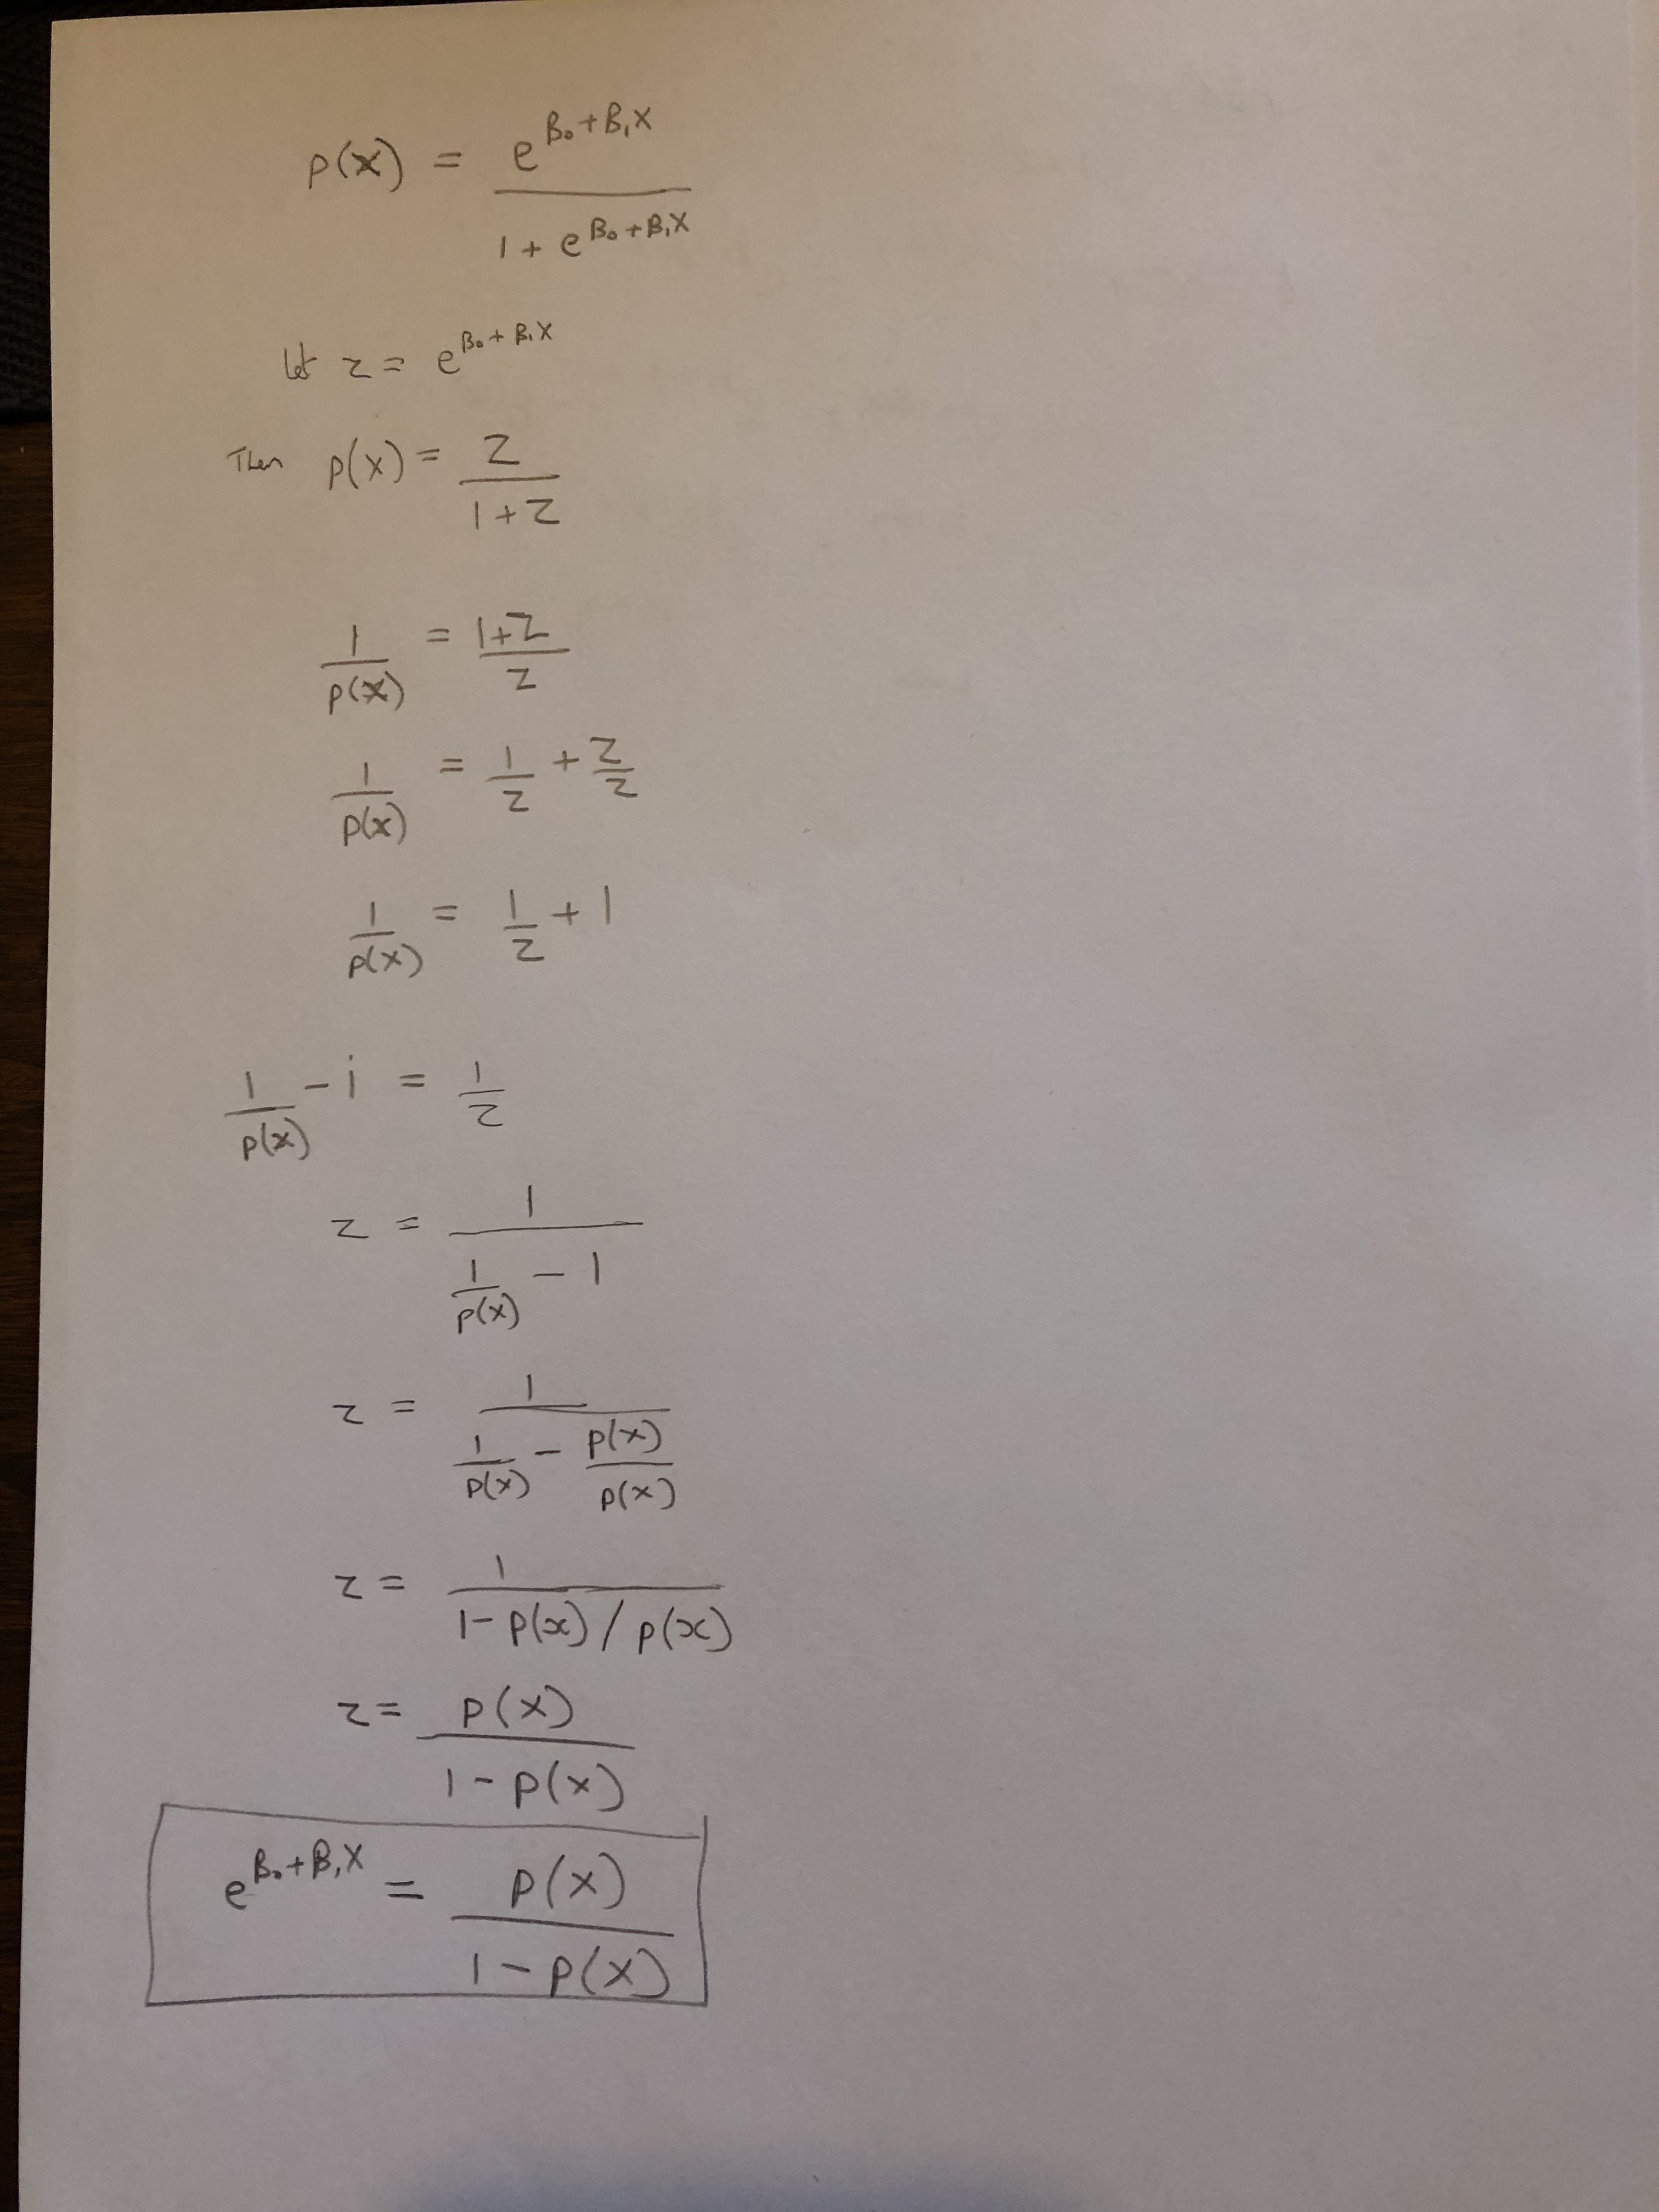 p(x) = e^{β₀+β₁X} / 1 + e^{β₀+β₁X}
Let z = e^{β₀+β₁X}
Then p(x) = z / 1+z
1/p(x) = 1+z/z
1/p(x) = 1/z + z/z
1/p(x) = 1/z + 1
1/p(x) - 1 = 1/z
z = 1 / 1/p(x) - 1
z = 1 / 1/p(x) - p(x)/p(x)
z = 1 / 1-p(x)/p(x)
z = p(x) / 1-p(x)
e^{β₀+β₁X} = p(x) / 1-p(x)